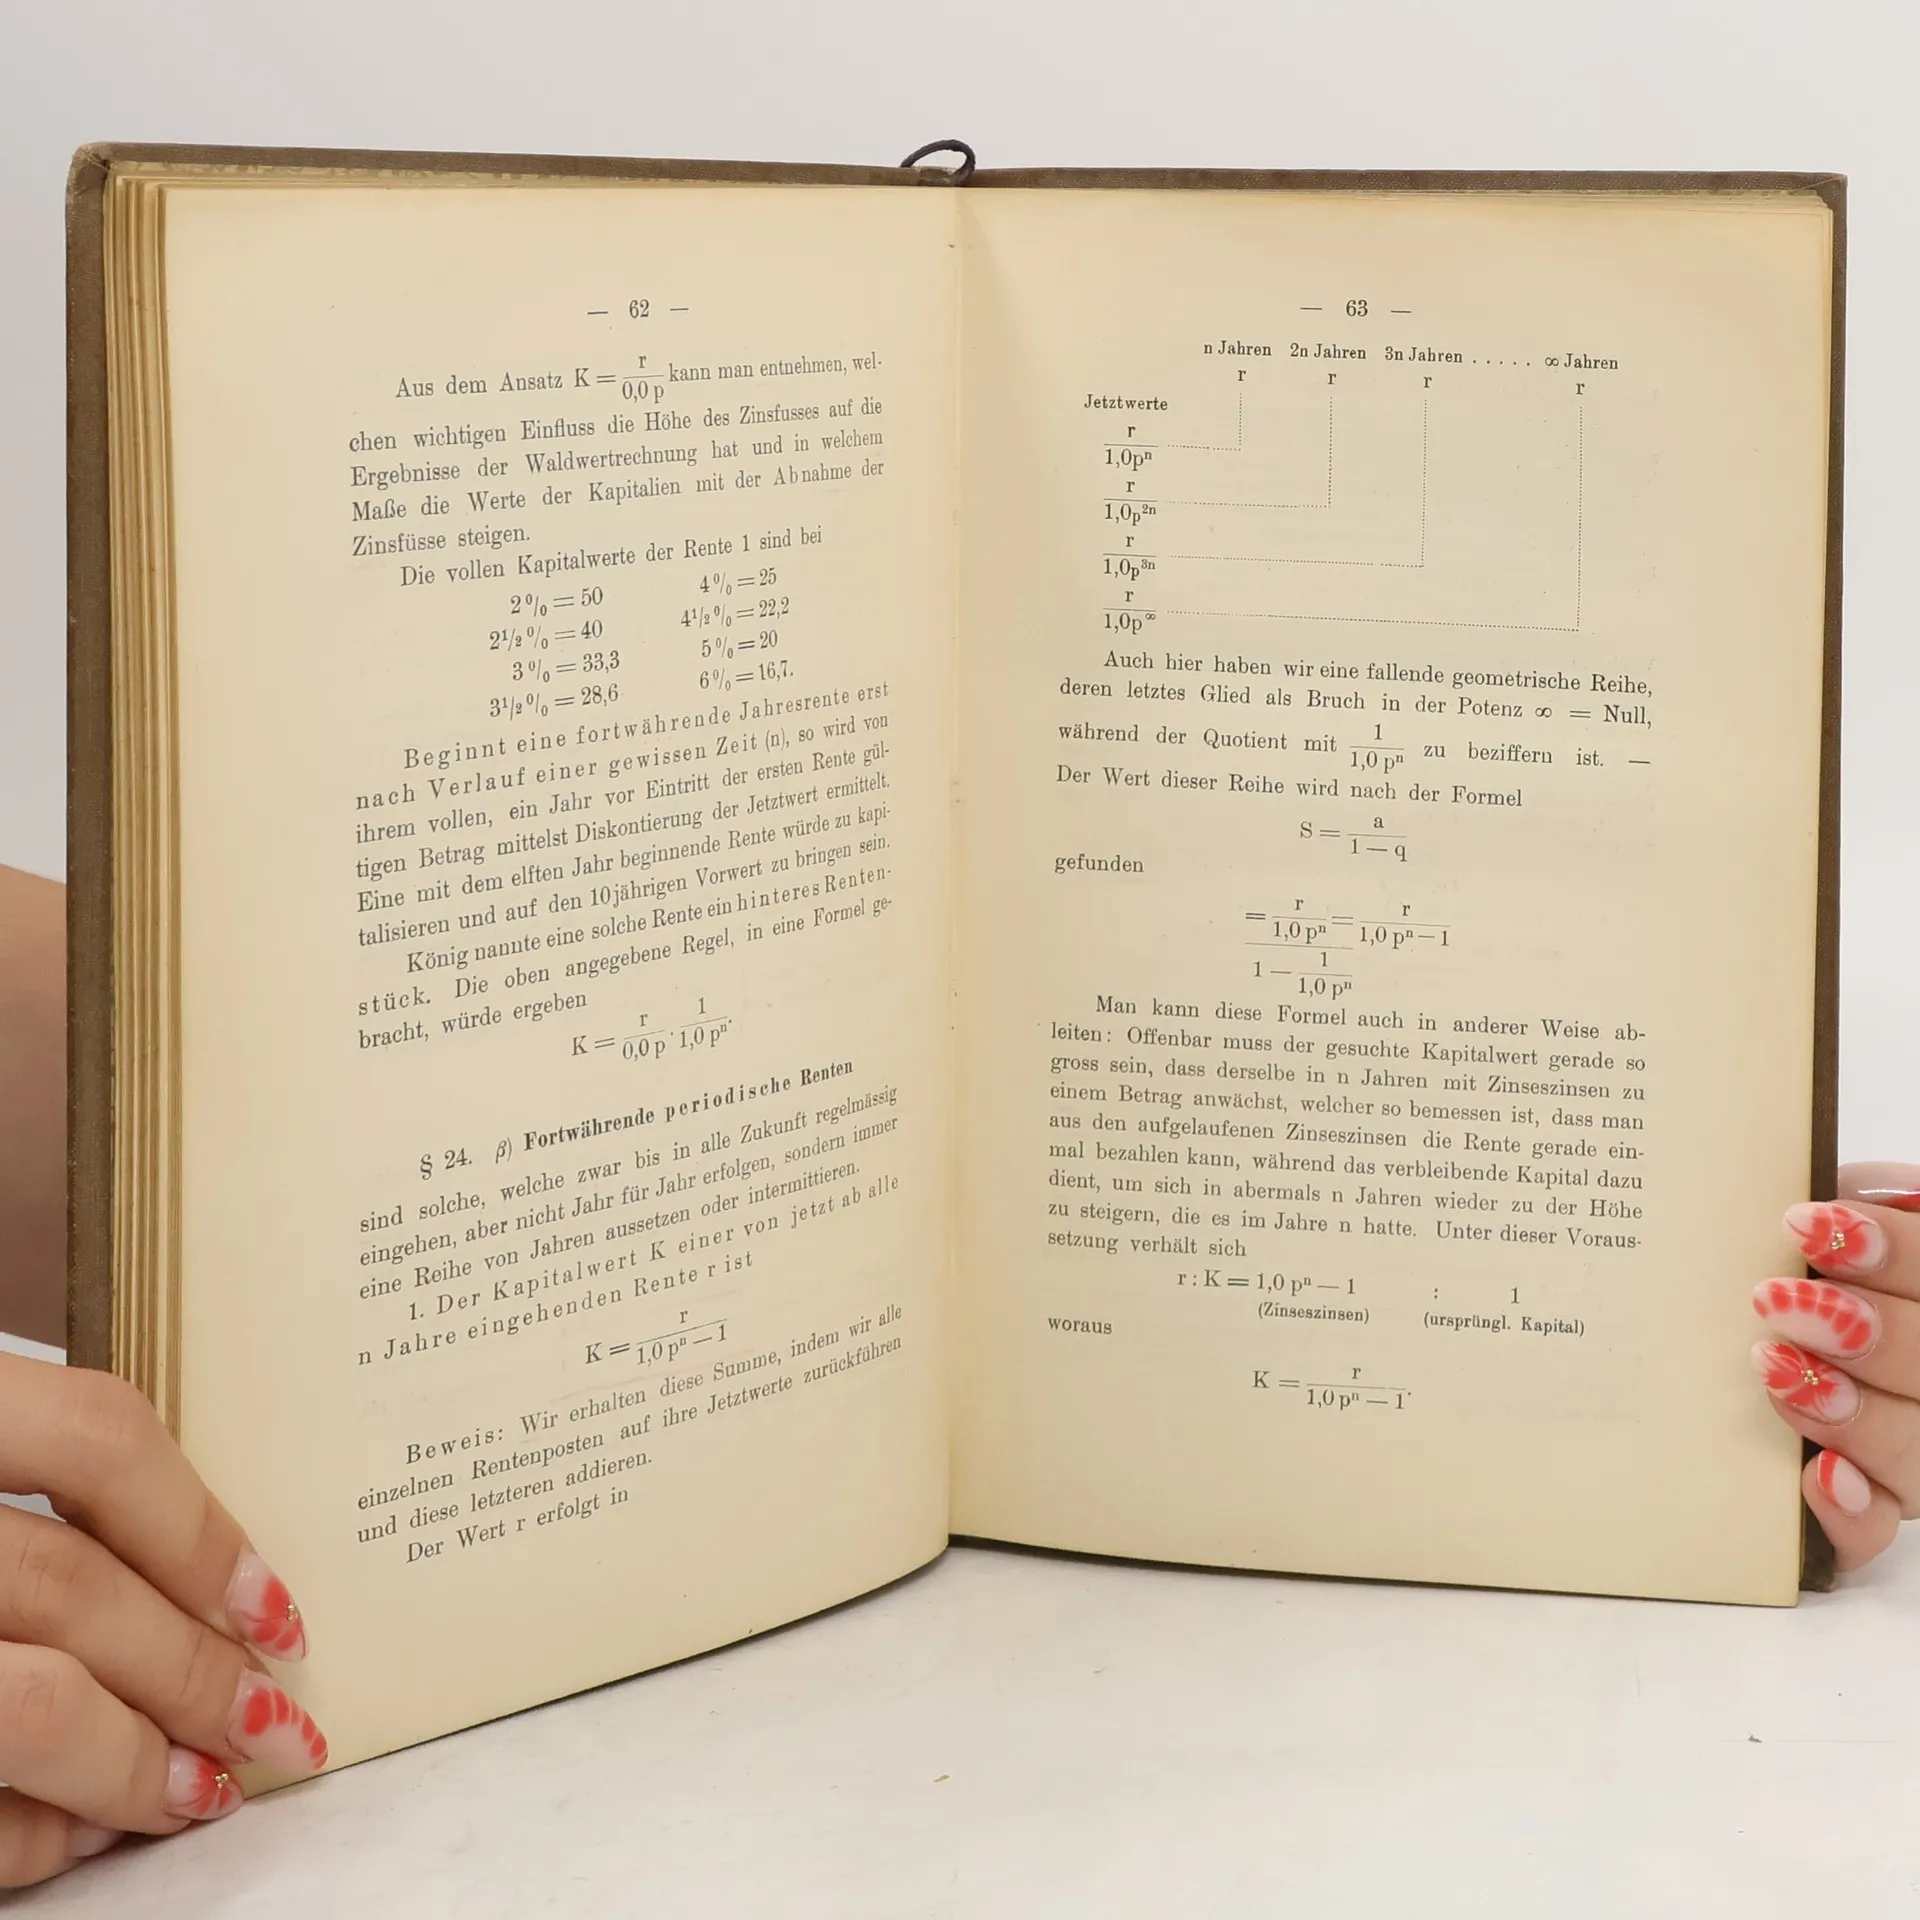 — 62 —
Aus dem Ansatz K = r / 0,0 p kann man entnehmen, wel-
chen wichtigen Einfluss die Höhe des Zinsfusses auf die
Ergebnisse der Waldwertrechnung hat und in welchem
Maße die Werte der Kapitalien mit der Abnahme der
Zinsfüsse steigen.
Die vollen Kapitalwerte der Rente 1 sind bei
2 % = 50 4 % = 25
2 1/2 % = 40 4 1/2 % = 22,2
3 % = 33,3 5 % = 20
3 1/2 % = 28,6 6 % = 16,7.
Beginnt eine fortwährende Jahresrente erst
nach Verlauf einer gewissen Zeit (n), so wird von
ihrem vollen, ein Jahr vor Eintritt der ersten Rente gül-
tigen Betrag mittelst Diskontierung der Jetztwert ermittelt.
Eine mit dem elften Jahr beginnende Rente würde zu kapi-
talisieren und auf den 10jährigen Vorwert zu bringen sein.
König nannte eine solche Rente ein hinteres Renten-
stück. Die oben angegebene Regel, in eine Formel ge-
bracht, würde ergeben
K = r / 0,0 p · 1 / 1,0 pⁿ.
§ 24. β) Fortwährende periodische Renten
sind solche, welche zwar bis in alle Zukunft regelmässig
eingehen, aber nicht Jahr für Jahr erfolgen, sondern immer
eine Reihe von Jahren aussetzen oder intermittieren.
1. Der Kapitalwert K einer von jetzt ab alle
n Jahre eingehenden Rente r ist
K = r / 1,0 pⁿ — 1
Beweis: Wir erhalten diese Summe, indem wir alle
einzelnen Rentenposten auf ihre Jetztwerte zurückführen
und diese letzteren addieren.
Der Wert r erfolgt in
— 63 —
n Jahren 2n Jahren 3n Jahren ..... ∞ Jahren
r r r r
Jetztwerte
r / 1,0pⁿ
r / 1,0p²ⁿ
r / 1,0p³ⁿ
r / 1,0p^∞
Auch hier haben wir eine fallende geometrische Reihe,
deren letztes Glied als Bruch in der Potenz ∞ = Null,
während der Quotient mit 1 / 1,0 pⁿ zu beziffern ist. —
Der Wert dieser Reihe wird nach der Formel
S = a / 1 — q
gefunden
= r / 1,0 pⁿ = r / 1,0 pⁿ — 1
1 — 1 / 1,0 pⁿ
Man kann diese Formel auch in anderer Weise ab-
leiten: Offenbar muss der gesuchte Kapitalwert gerade so
gross sein, dass derselbe in n Jahren mit Zinseszinsen zu
einem Betrag anwächst, welcher so bemessen ist, dass man
aus den aufgelaufenen Zinseszinsen die Rente gerade ein-
mal bezahlen kann, während das verbleibende Kapital dazu
dient, um sich in abermals n Jahren wieder zu der Höhe
zu steigern, die es im Jahre n hatte. Unter dieser Voraus-
setzung verhält sich
r : K = 1,0 pⁿ — 1 : 1
(Zinseszinsen) (ursprüngl. Kapital)
woraus
K = r / 1,0 pⁿ — 1.